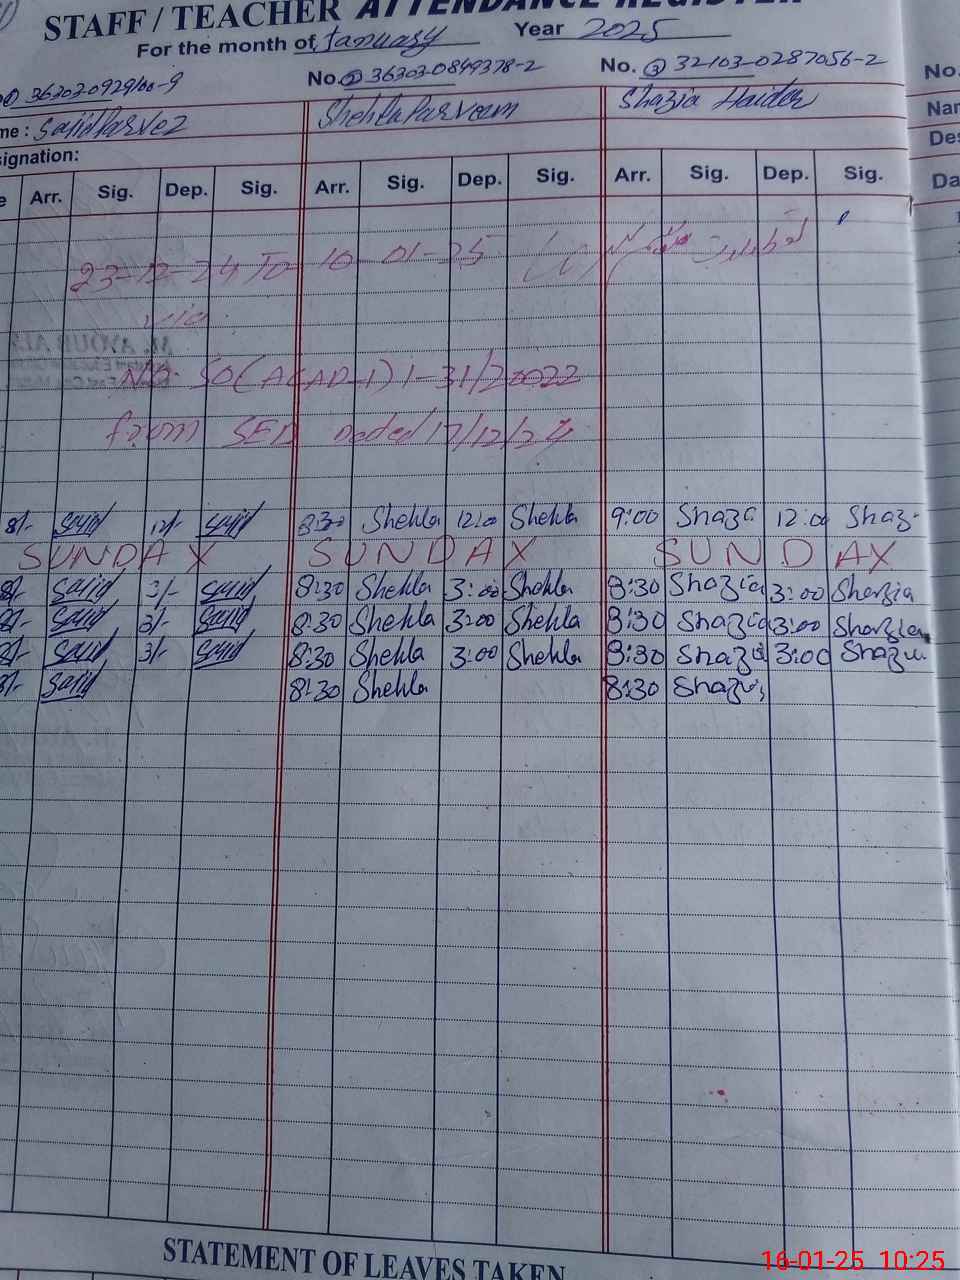 STAFF / TEACHER ATTENDANCE REGISTER
For the month of January Year 2025
No. ② 36303-0849378-2 No. ③ 32103-0287056-2 No.
me : Sajid Parvez Shehla Parveen Shazia Haider Nam
signation: Des
e Arr. Sig. Dep. Sig. Arr. Sig. Dep. Sig. Arr. Sig. Dep. Sig. Da
23-12-24 To 10-01-25
via
No. SO(ACAD-1) 1-31/2022
from SED Dated 17/12/24
8/- Sajid 12/- Sajid 8:30 Shehla 12:00 Shehla 9:00 Shazia 12:00 Shaz
SUNDAY SUNDAY SUNDAY
8/- Sajid 3/- Sajid 8:30 Shehla 3:00 Shehla 8:30 Shazia 3:00 Shazia
8/- Sajid 3/- Sajid 8:30 Shehla 3:00 Shehla 8:30 Shazia 3:00 Shazia
8/- Sajid 3/- Sajid 8:30 Shehla 3:00 Shehla 8:30 Shazia 3:00 Shazia
8/- Sajid 8:30 Shehla 8:30 Shazia
STATEMENT OF LEAVES TAKEN
16-01-25 10:25